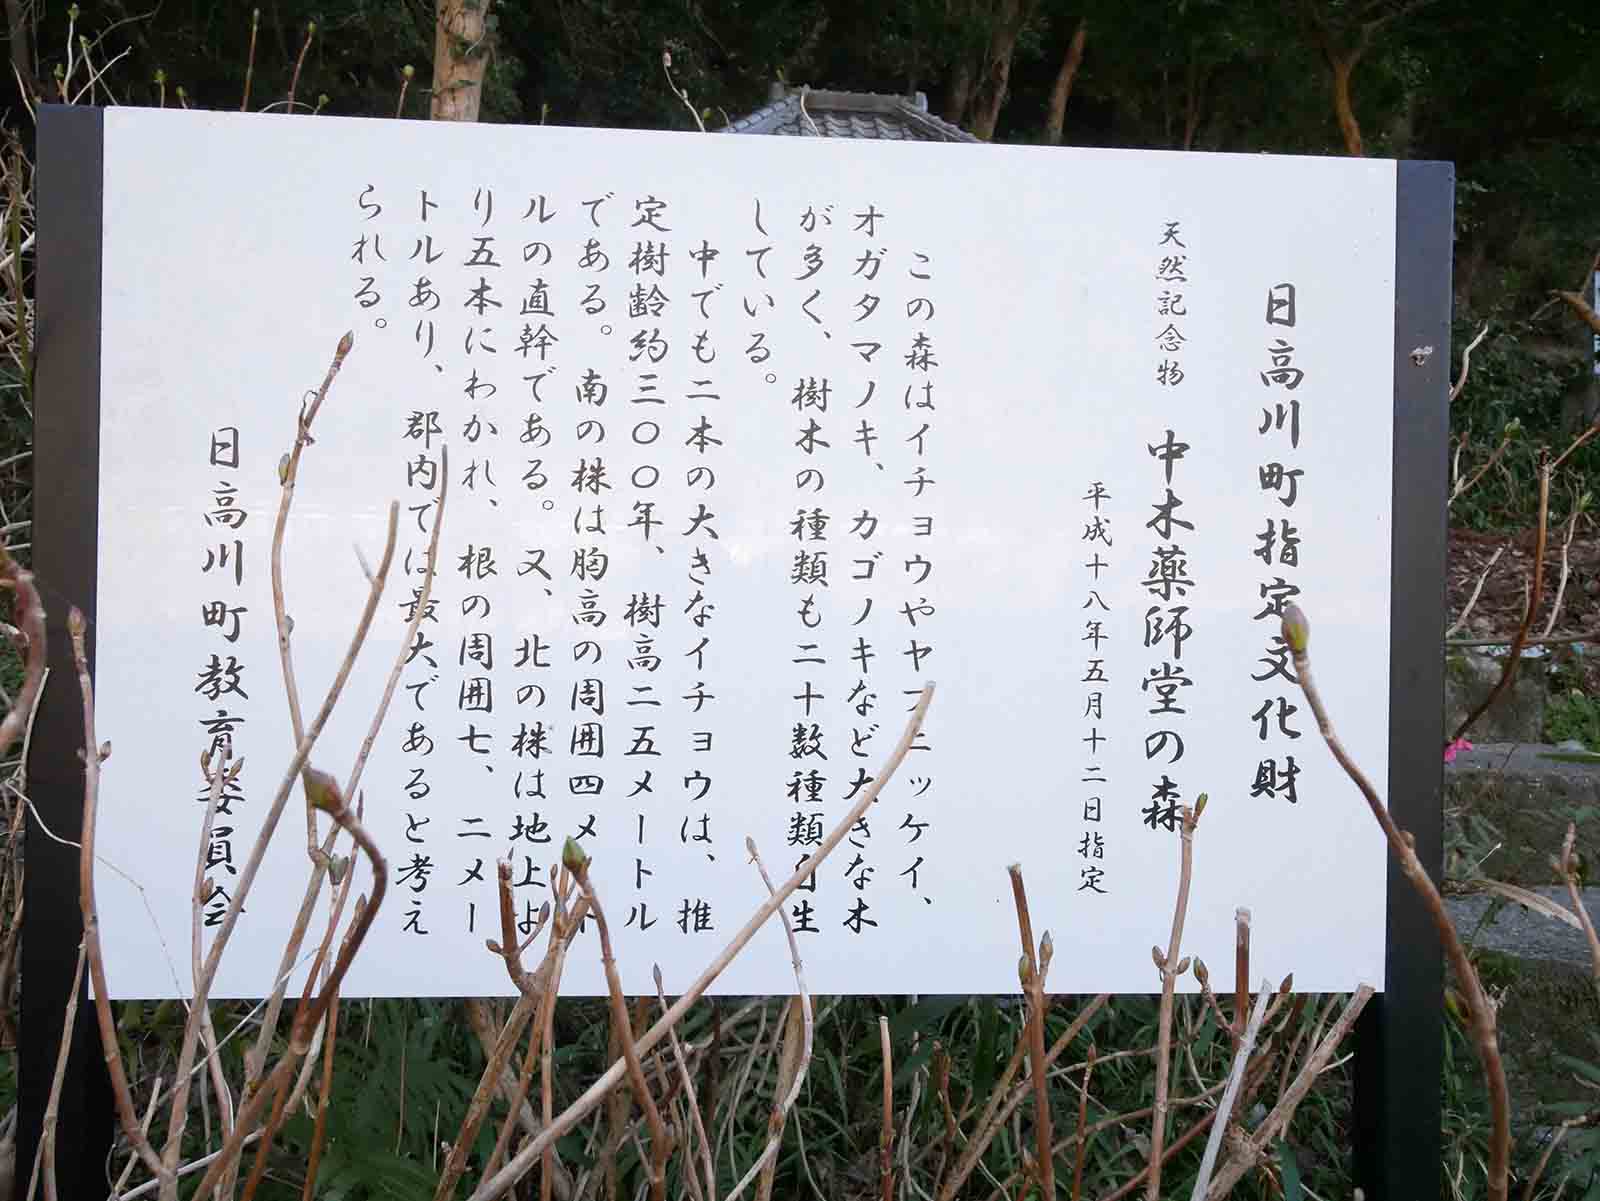 日高川町指定文化財
天然記念物 中木薬師堂の森
平成十八年五月十二日指定
この森はイチョウやヤブニッケイ、
オガタマノキ、カゴノキなど大きな木
が多く、樹木の種類も二十数種類自生
している。
中でも二本の大きなイチョウは、推
定樹齢約三〇〇年、樹高二五メートル
である。南の株は胸高の周囲四メート
ルの直幹である。又、北の株は地上よ
り五本にわかれ、根の周囲七、二メー
トルあり、郡内では最大であると考え
られる。
日高川町教育委員会